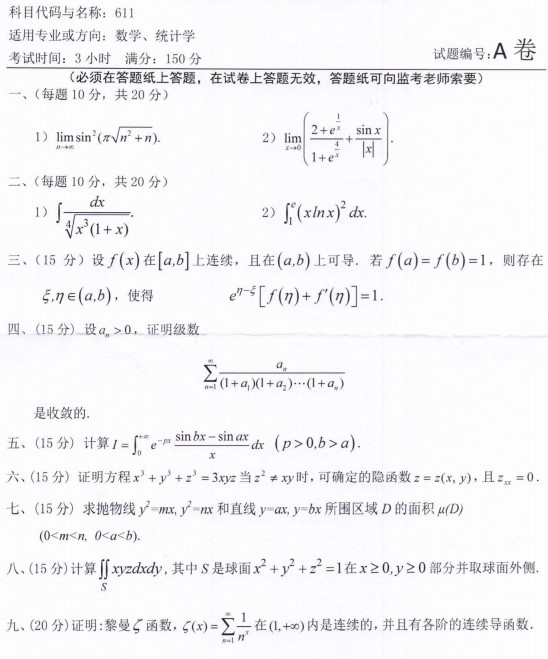 科目代码与名称：611
适用专业或方向：数学、统计学
考试时间：3 小时 满分：150 分 试题编号：A 卷
（必须在答题纸上答题，在试卷上答题无效，答题纸可向监考老师索要）
一、（每题 10 分，共 20 分）
1）$\lim_{n\to\infty}\sin^2(\pi\sqrt{n^2+n})$. 2）$\lim_{x\to 0}\left(\frac{2+e^{\frac{1}{x}}}{1+e^{\frac{4}{x}}}+\frac{\sin x}{|x|}\right)$.
二、（每题 10 分，共 20 分）
1）$\int\frac{dx}{\sqrt[4]{x^3}(1+x)}$. 2）$\int_1^e(x\ln x)^2dx$.
三、（15 分）设 $f(x)$ 在 $[a,b]$ 上连续，且在 $(a,b)$ 上可导．若 $f(a)=f(b)=1$，则存在
$\xi,\eta\in(a,b)$，使得 $e^{\eta-\xi}[f(\eta)+f'(\eta)]=1$.
四、（15 分）设 $a_n>0$，证明级数
$\sum_{n=1}^{\infty}\frac{a_n}{(1+a_1)(1+a_2)\cdots(1+a_n)}$
是收敛的.
五、（15 分）计算 $I=\int_0^{+\infty}e^{-px}\frac{\sin bx-\sin ax}{x}dx$（$p>0,b>a$）.
六、（15 分）证明方程 $x^3+y^3+z^3=3xyz$ 当 $z^2\neq xy$ 时，可确定的隐函数 $z=z(x,y)$，且 $z_{xx}=0$．
七、（15 分）求抛物线 $y^2=mx, y^2=nx$ 和直线 $y=ax, y=bx$ 所围区域 D 的面积 $\mu(D)$
$(0<m<n, 0<a<b)$.
八、（15 分）计算 $\iint_S xyzdxdy$，其中 S 是球面 $x^2+y^2+z^2=1$ 在 $x\geq 0,y\geq 0$ 部分并取球面外侧．
九、（20 分）证明：黎曼 $\zeta$ 函数，$\zeta(x)=\sum_{n=1}^{\infty}\frac{1}{n^x}$ 在 $(1,+\infty)$ 内是连续的，并且有各阶的连续导函数．